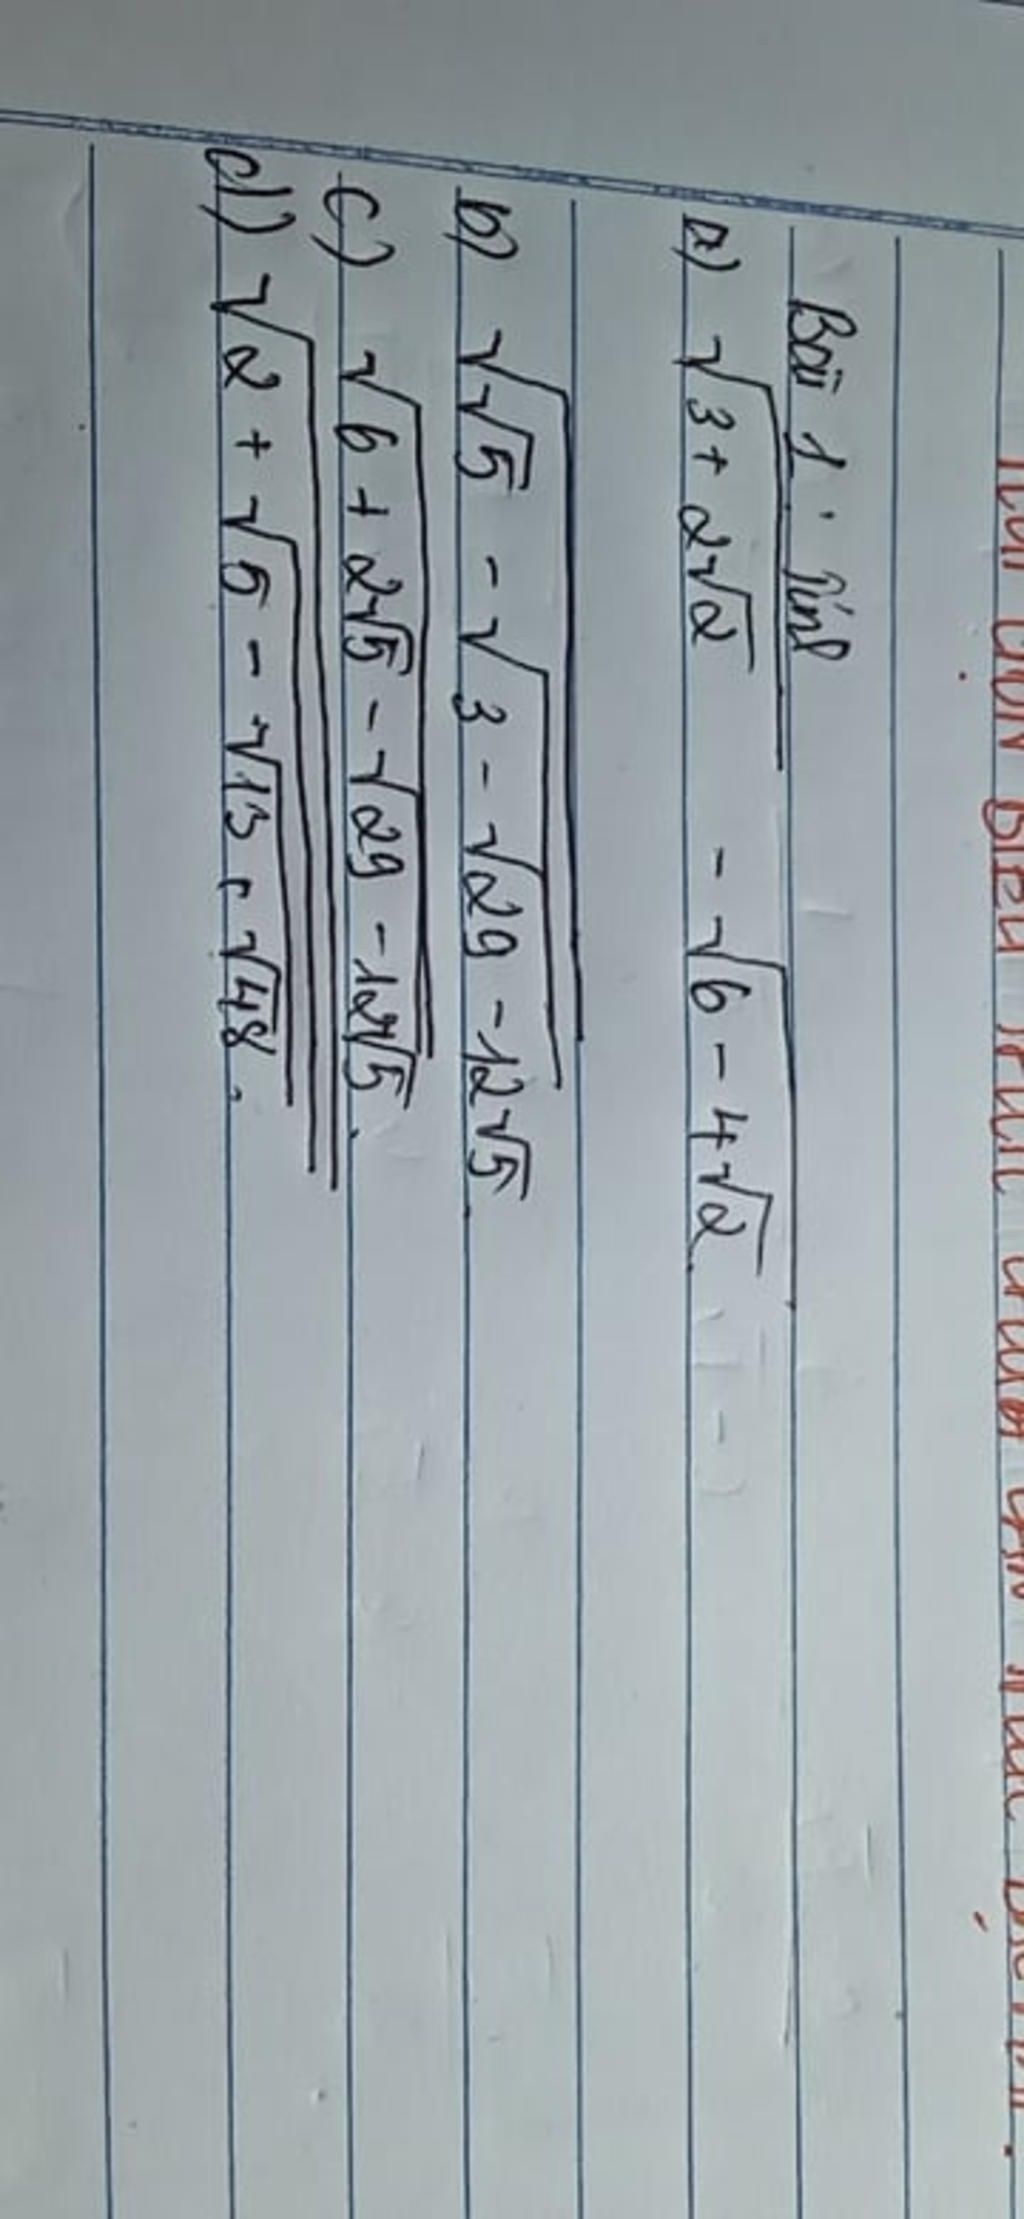 Bài 1: Tính
a) √(3 + 2√2) - √(6 - 4√2)
b) √(√5 - √(3 - √(29 - 12√5)))
c) √(6 + 2√5 - √(29 - 12√5))
d) √(2 + √(5 - √(13 + √48)))